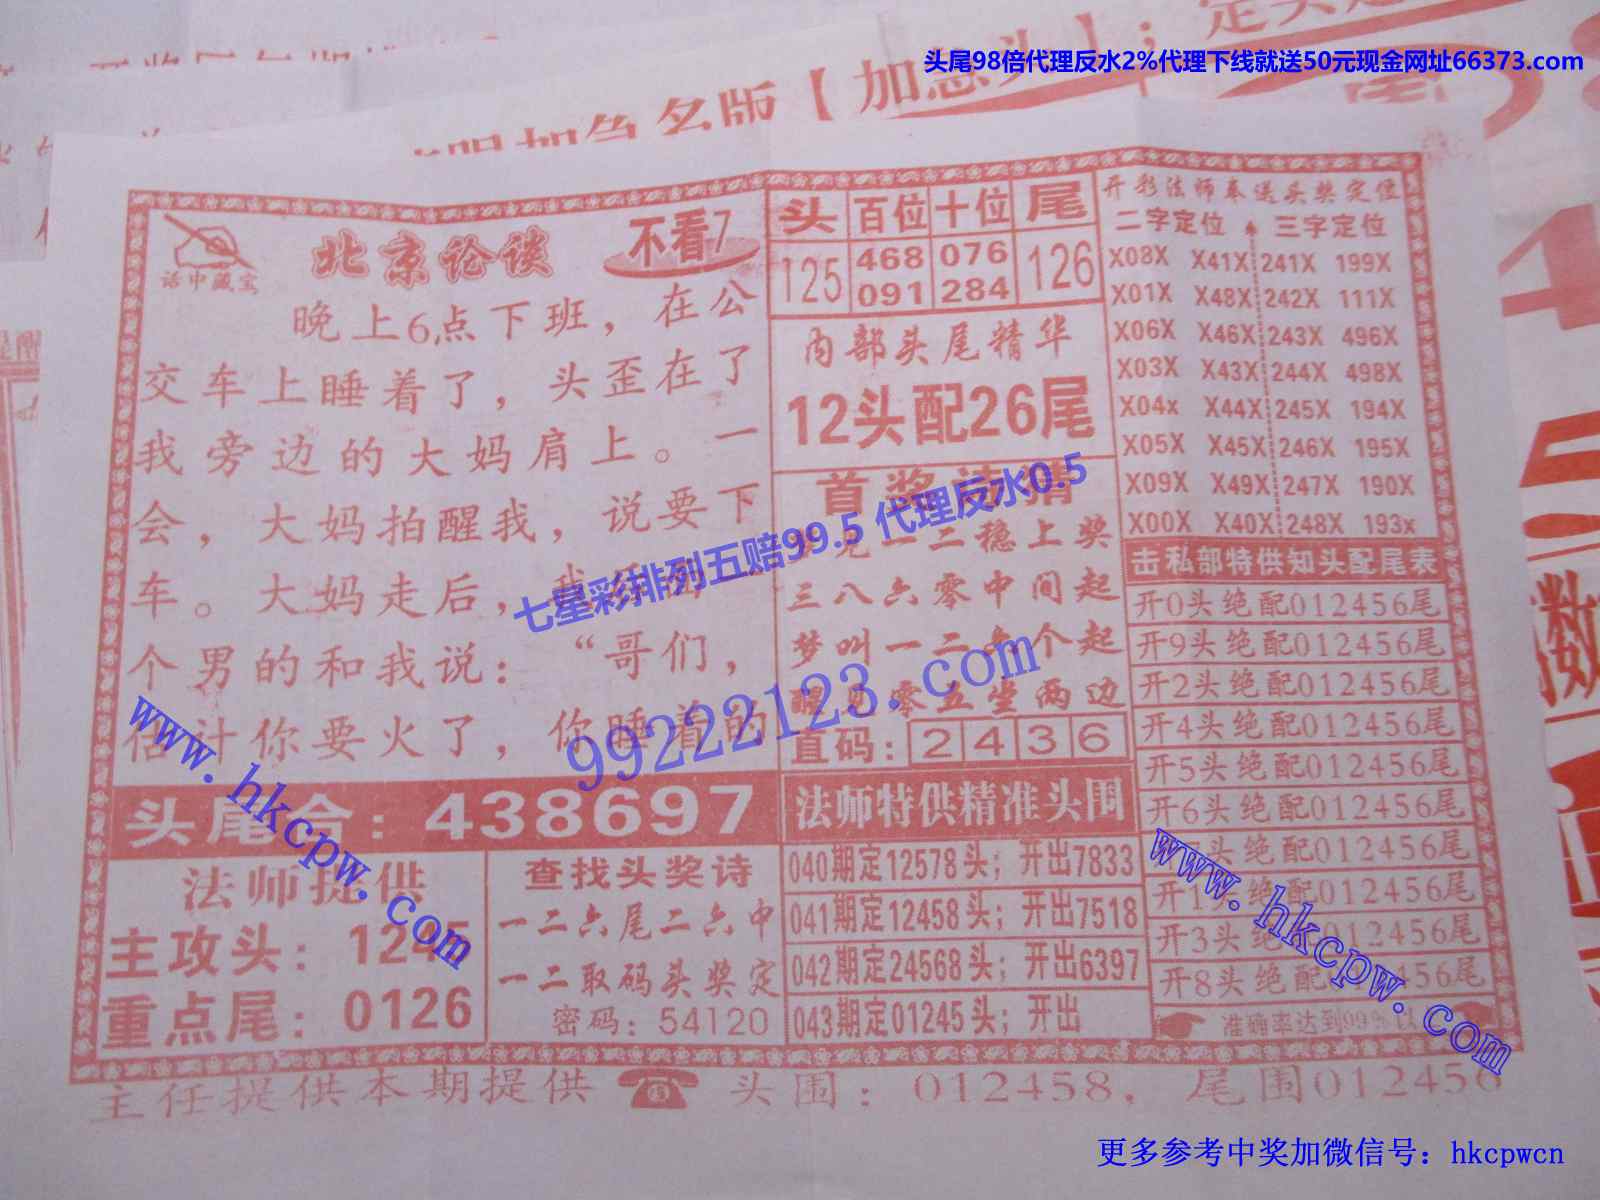 头尾98倍代理反水2%代理下线就送50元现金网址66373.com
名版【加急头】：定头
话中藏宝
北京论谈
不看7
晚上6点下班，在公
交车上睡着了，头歪在了
我旁边的大妈肩上。一
会，大妈拍醒我，说要下
车。大妈走后，
个男的和我说：“哥们，
估计你要火了，你睡着的
头尾合：438697
法师提供
主攻头：1245
重点尾：0126
查找头奖诗
一二六尾二六中
一二取码头奖定
密码：54120
头 百位 十位 尾
125 468 076 126
091 284
内部头尾精华
12头配26尾
首奖诗猜
一二稳上奖
三八六零中间起
梦叫一二 个起
零五坐两边
直码：2 4 3 6
法师特供精准头围
040期定12578头；开出7833
041期定12458头；开出7518
042期定24568头；开出6397
043期定01245头；开出
开彩法师奉送头奖定位
二字定位 三字定位
X08X X41X 241X 199X
X01X X48X 242X 111X
X06X X46X 243X 496X
X03X X43X 244X 498X
X04x X44X 245X 194X
X05X X45X 246X 195X
X09X X49X 247X 190X
X00X X40X 248X 193x
击私部特供知头配尾表
开0头绝配012456尾
开9头绝配012456尾
开2头绝配012456尾
开4头绝配012456尾
开5头绝配012456尾
开6头绝配012456尾
头绝配012456尾
开1头绝配012456尾
开3头绝配012456尾
开8头绝配012456尾
准确率达到99%以
主任提供本期提供 头围：012458，尾围012456
七星彩排列五赔99.5 代理反水0.5
99222123.com
www.hkcpw.com
www.hkcpw.com
更多参考中奖加微信号：hkcpwcn